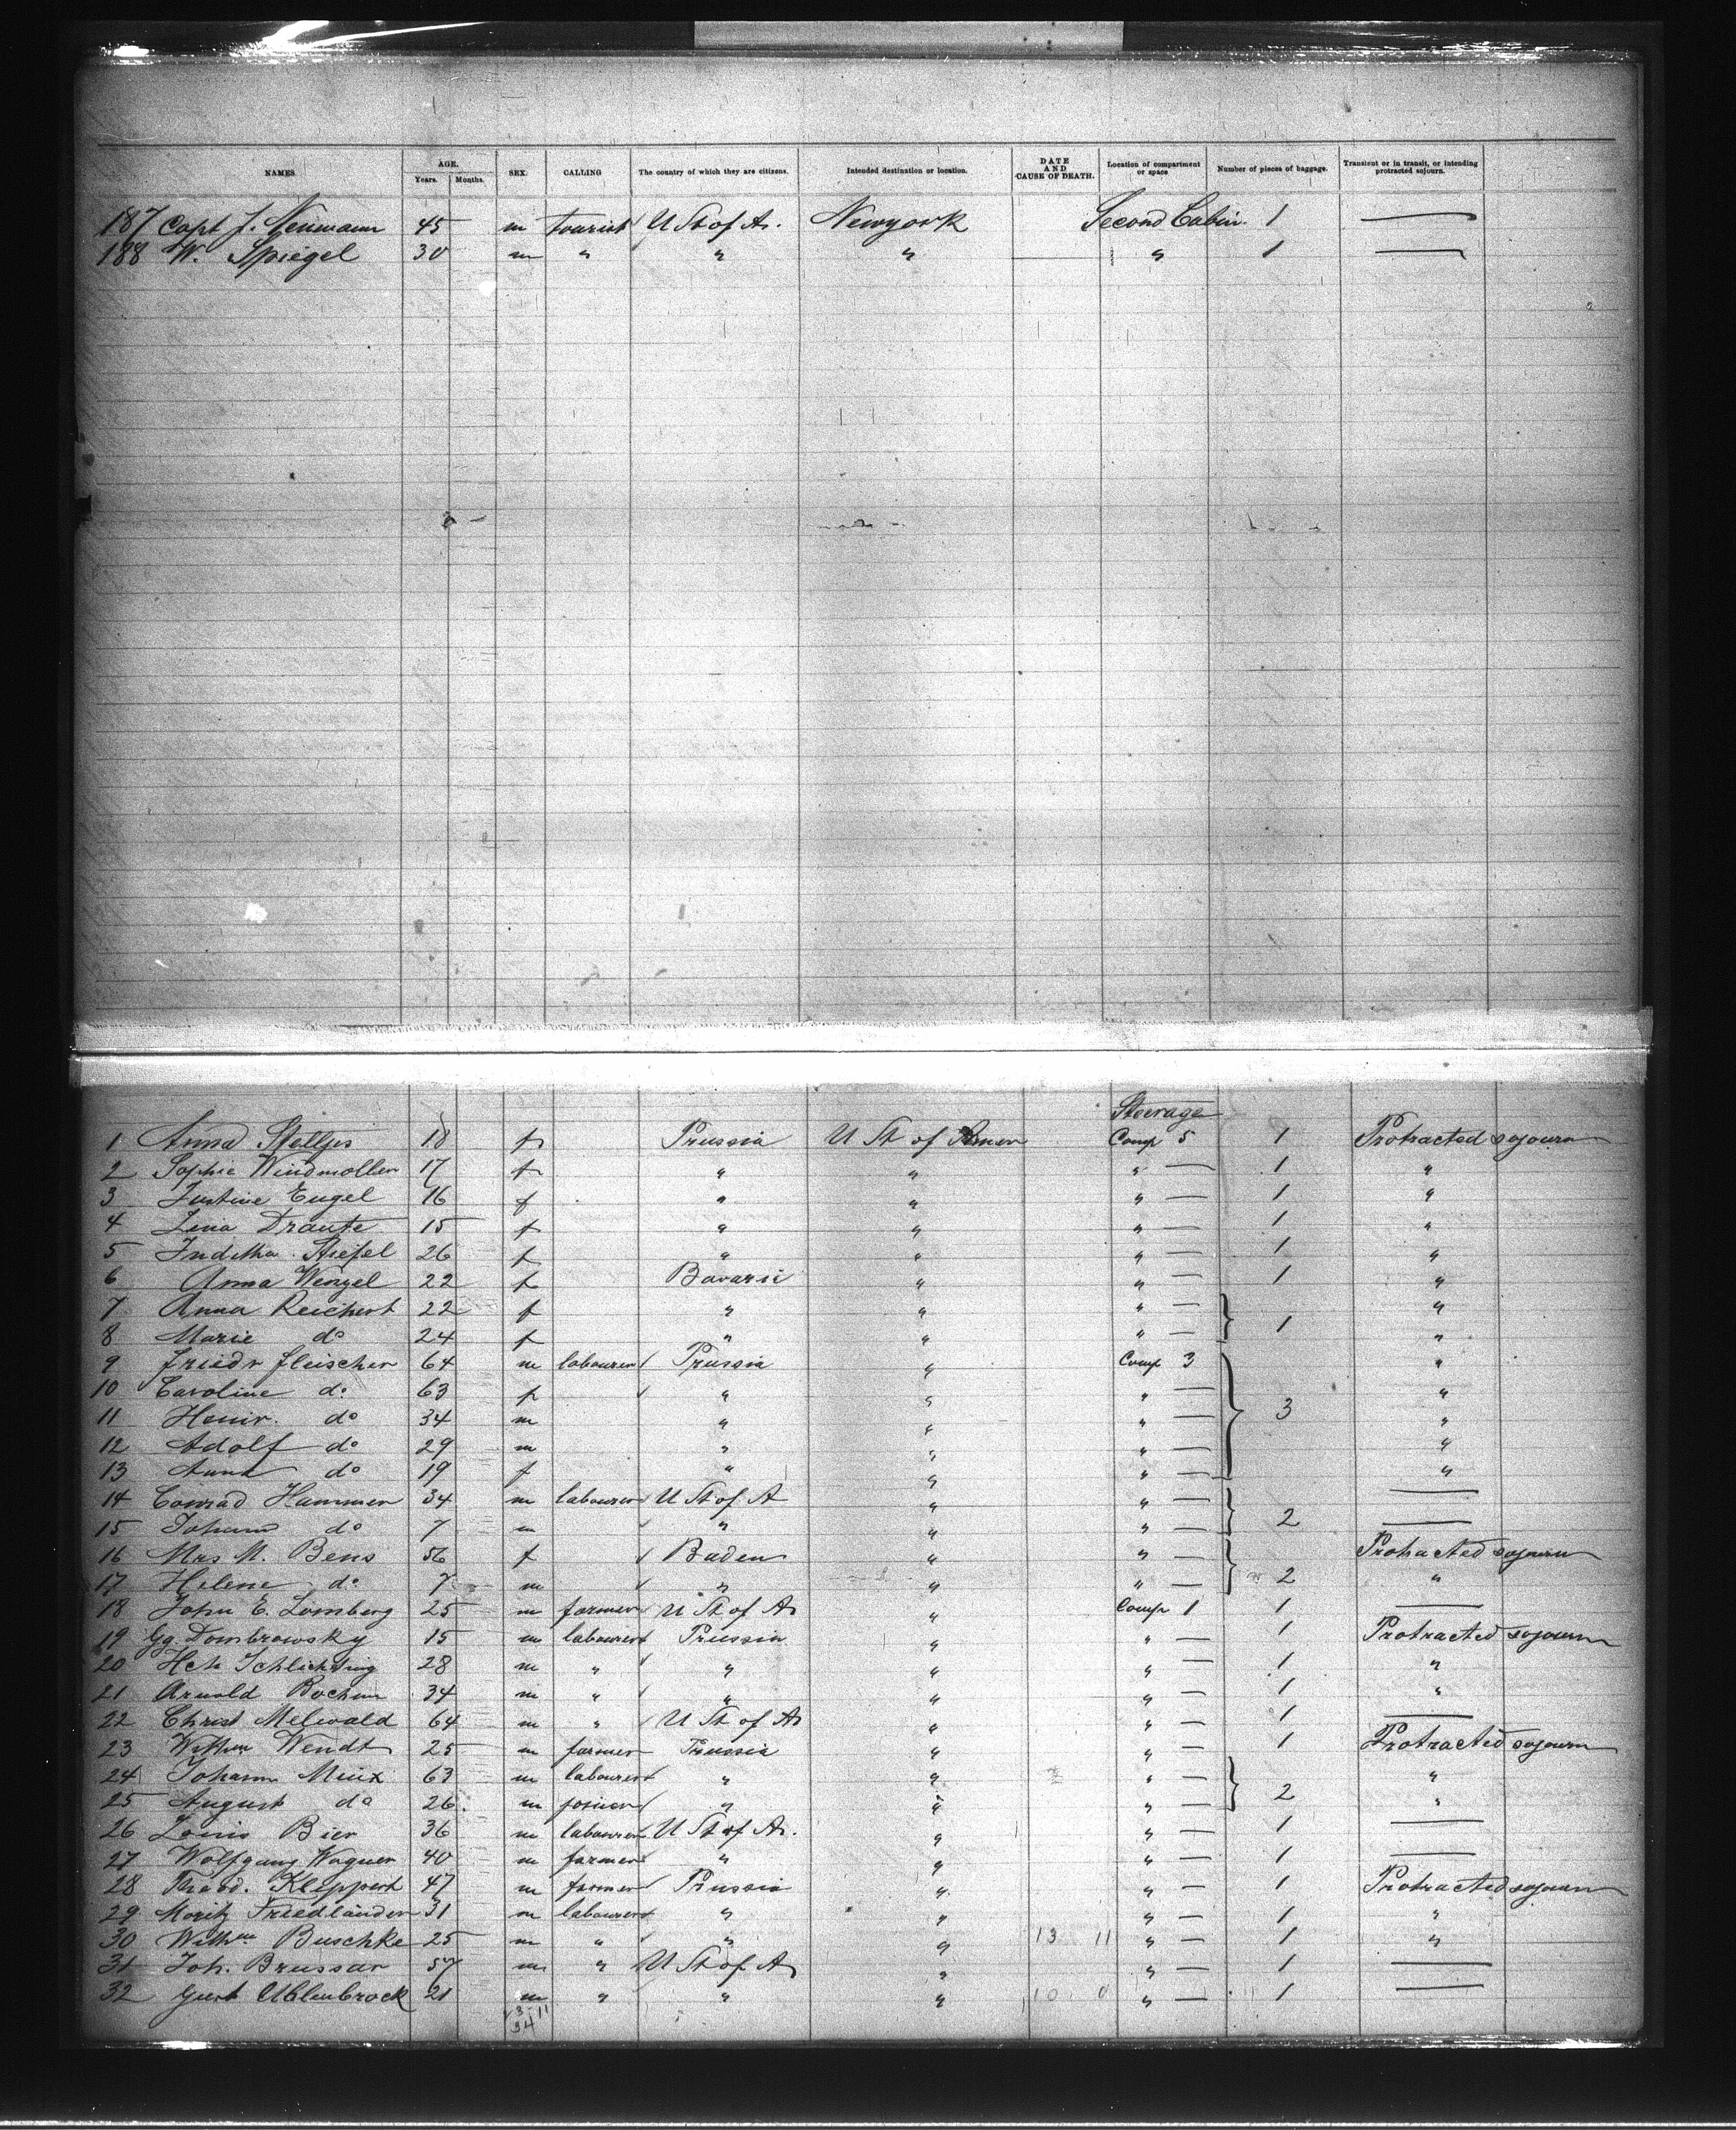 NAMES AGE. Years. Months. SEX. CALLING The country of which they are citizens. Intended destination or location. DATE AND CAUSE OF DEATH. Location of compartment or space Number of pieces of baggage. Transient or in transit, or intending protracted sojourn.
187 Capt J. Neumann 45 m tourist U St of A. Newyork Second Cabin 1 —
188 W. Spiegel 30 m " " " " 1 —
Steerage
1 Anna Stelljes 18 f Prussia U St of Amer Comp 5 1 Protracted sojourn
2 Sophie Windmoller 17 f " " " — 1 "
3 Justine Engel 16 f " " " — 1 "
4 Lena Draute 15 f " " " — 1 "
5 26 f " " " — 1 "
6 Anna Wenzel 22 f Bavaria " " — 1 "
7 Anna Reichert 22 f " " " — "
8 Marie do 24 f " " " — 1 "
9 Friedr Fleischer 64 m labourer Prussia " Comp 3 "
10 Caroline do 63 f " " " — "
11 Heinr. do 34 m " " " — 3 "
12 Adolf do 29 m " " " — "
13 Anna do 19 f " " " — "
14 Conrad Hammer 34 m labourer U St of A " " — —
15 Johann do 7 m " " " — 2 —
16 Mrs M. Bens 56 f Baden " " — Protracted sojourn
17 Helene do 7 m " " " — 2 "
18 John E. Lomberg 25 m farmer U St of A " Comp 1 1 —
19 Gg. Dombrowsky 15 m labourer Prussia " " — 1 Protracted sojourn
20 Hch Schlichting 28 m " " " " — 1 "
21 Arnold Bochum 34 m " " " " — 1 "
22 Christ Melwald 64 m " U St of A " " — 1 —
23 Wilhm Wendt 25 m farmer Prussia " " — 1 Protracted sojourn
24 Johann 63 m labourer " " " — "
25 August do 26 m " " " — 2 "
26 Louis Bier 36 m labourer U St of A. " " — 1 —
27 Wolfgang Wagner 40 m farmer " " " — 1 —
28 Theod. Kleppert 47 m farmer Prussia " " — 1 Protracted sojourn
29 Moritz Friedländer 31 m labourer " " " — 1 "
30 Wilhm Buschke 25 m " " " 13 11 " — 1 "
31 Joh. Brussar 57 m " U St of A " " — 1 —
32 Gust Uhlenbrock 21 m " " " 10 0 " — 1 —
3 11
34